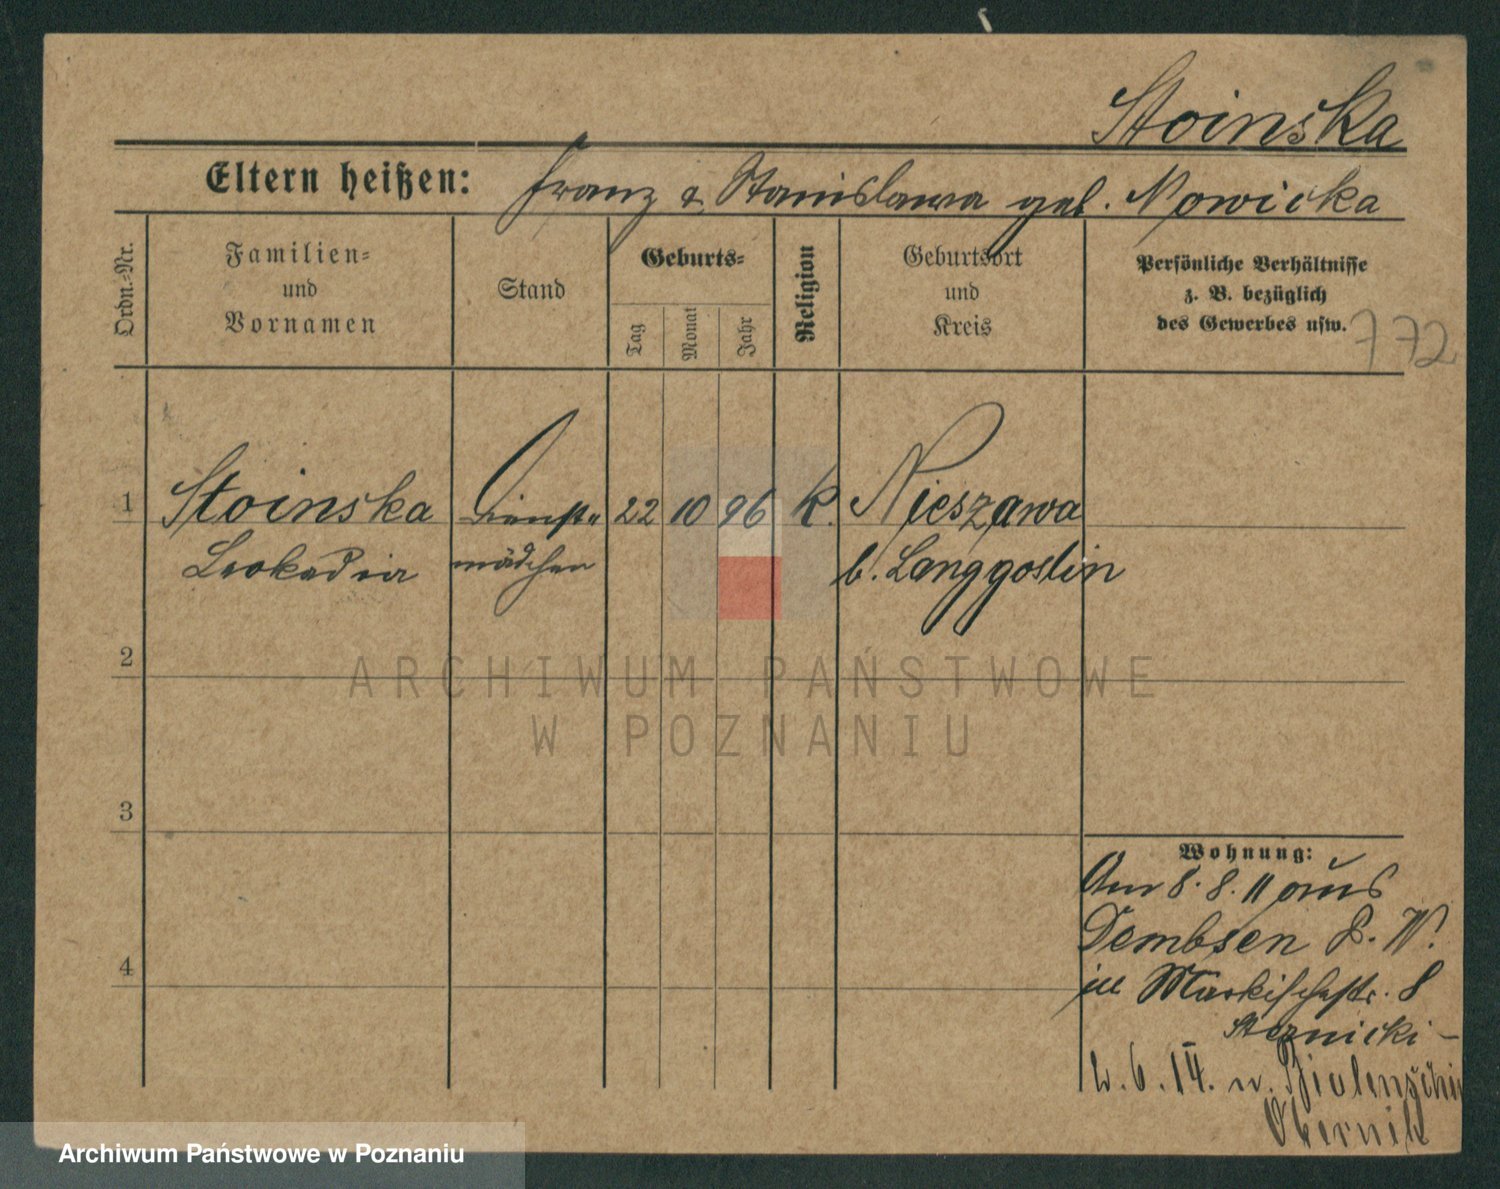 Stoinska
Eltern heißen: Franz & Stanislawa geb. Nowicka
Ordn.-Nr.
Familien-
und
Vornamen
Stand
Geburts-
Tag
Monat
Jahr
Religion
Geburtsort
und
Kreis
Persönliche Verhältnisse
z. B. bezüglich
des Gewerbes usw.
772
1 Stoinska Dienst- 22 10 96 K. Nieszawa
Leokadia mädchen b. Langgoslin
2
ARCHIWUM PAŃSTWOWE
W POZNANIU
3
Wohnung:
Am 8. 8. 11 aus
Dembsen P. W.
4
in Märkischestr. 8
2. 6. 14. n.
Obernik
Archiwum Państwowe w Poznaniu